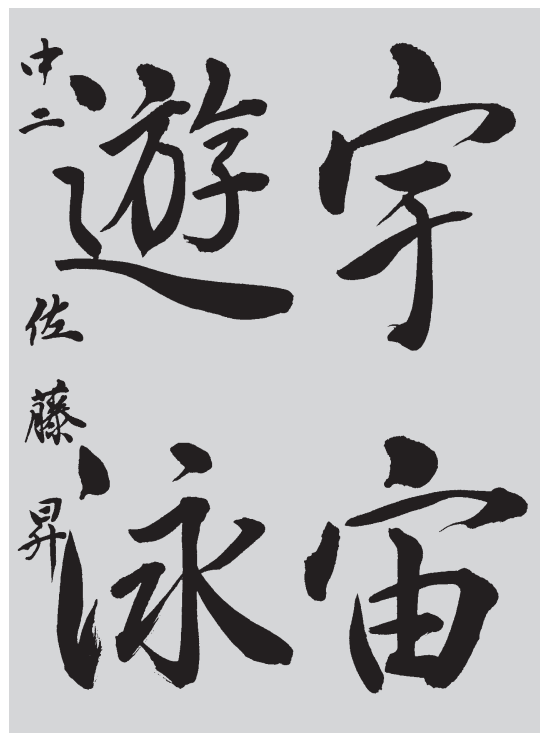 宇宙
遊泳
中二 佐藤昇